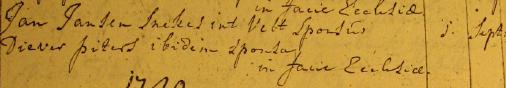 in facie Ecclesiæ.
Jan Jansen Snekes int Velt Sponsus 5. Sept.
Diever piters ibidem sponsa
in facie Ecclesiæ.